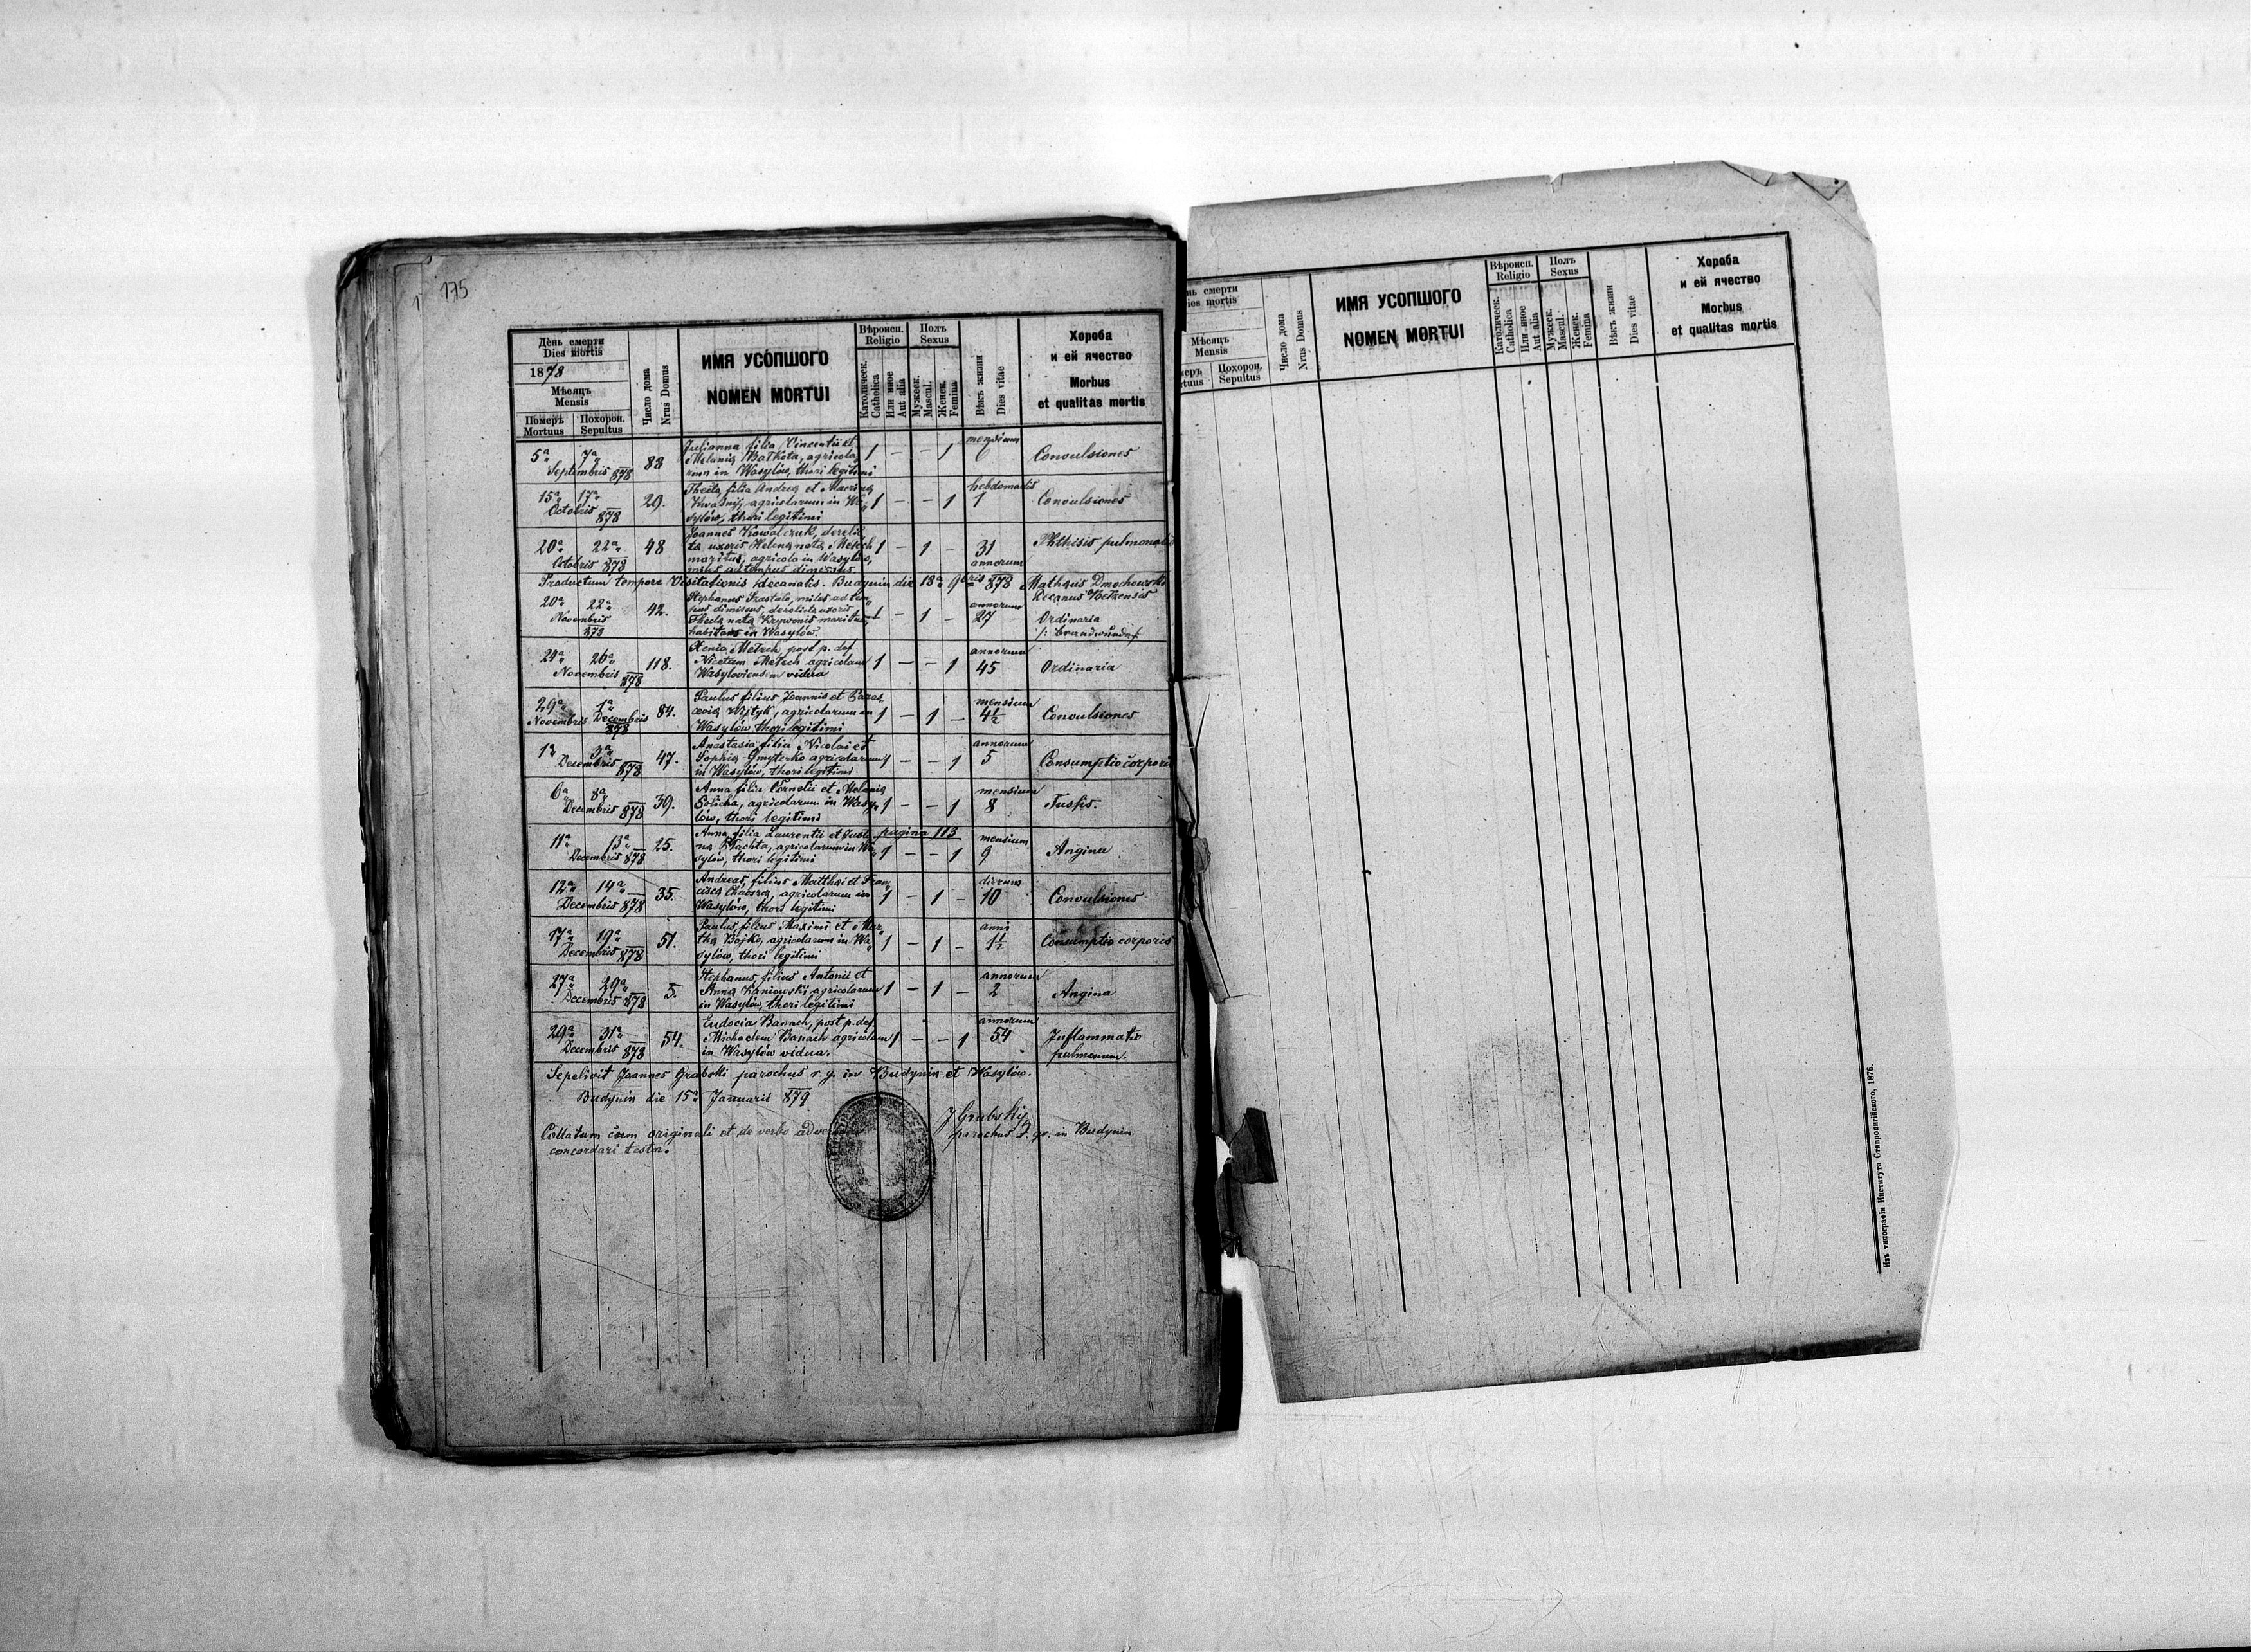 175
День смерти
Dies mortis
1878
Мѣсяцъ
Mensis
Померъ
Mortuus
Похорон.
Sepultus
Число дома
Nrus Domus
ИМЯ УСОПШОГО
NOMEN MORTUI
Вѣроисп.
Religio
Католическ.
Catholica
Или иное
Aut alia
Полъ
Sexus
Мужеск.
Mascul.
Женск.
Femina
Вѣкъ жизни
Dies vitae
Хороба
и ей ячество
Morbus
et qualitas mortis
5a 7a
Septembris 878
82
Julianna filia Vincentii et
Melania agricola
rum in Wasylów, thori legitimi
1 – – 1
mensium
Convulsiones
15a 17a
Octobris 878
29.
Thecla filia Andreae et Marina
agricolarum in Wa
sylów, thori legitimi
1 – – 1
hebdomadis
1
Convulsiones
20a 22a
Octobris 878
48
Joannes Kowalczuk, derelic
ta uxoris Helena nata Metech
maritus, agricola in Wasylów,
miles ad tempus dimissus
1 – 1 –
31
annorum
Phthisis pulmonalis
Productum tempore Visitationis decanalis. Budynin die 18a 9bris 878 Mathaus Dmochowski
Decanus Betzensis
20a 22a
Novembris
878
42.
Stephanus miles ad tem
pus dimissus, derelicta uxoris
Thecla nata Krywonis maritus
habitans in Wasylów.
1 – 1 –
annorum
27
Ordinaria
24a 26a
Novembris 878
118.
Xenia Metech, post p. def.
Nicetam Metech agricolam
Wasyloviensem vidua
1 – – 1
annorum
45
Ordinaria
29a 1a
Novembris Decembris
878
84.
Paulus filius Joannis et Paras
cevia Wjtyk, agricolarum in
Wasylów, thori legitimi
1 – 1 –
mensium
4½
Convulsiones
1a 3a
Decembris 878
47.
Anastasia filia Nicolai et
Sophia Gmyterko agricolarum
in Wasylów, thori legitimi
1 – – 1
annorum
5
Consumptio corporis
6a 8a
Decembris 878
39.
Anna filia Cornelii et Melania
Solicha, agricolarum in Wasy
lów, thori legitimi
1 – – 1
mensium
8
Tussis.
11a 13a
Decembris 878
25.
Anna filia Laurentii et Justi
na Wachta, agricolarum in Wa
sylów, thori legitimi
pagina 113
1 – – 1
mensium
9
Angina
12a 14a
Decembris 878
35.
Andreas, filius Matthai et Fran
cisca agricolarum in
Wasylów, thori legitimi
1 – 1 –
dierum
10
Convulsiones
17a 19a
Decembris 878
51.
Paulus, filius Maximi et Mar
tha Bojko, agricolarum in Wa
sylów, thori legitimi
1 – 1 –
anni
1½
Consumptio corporis
27a 29a
Decembris 878
5.
Stephanus, filius Antonii et
Anna Kaniowski agricolarum
in Wasylów, thori legitimi
1 – 1 –
annorum
2
Angina
29a 31a
Decembris 878
54.
Eudocia Banach, post p. def.
Michaelem Banach agricolam
in Wasylów vidua.
1 – – 1
annorum
54
Inflammatio
pulmonum.
Sepelivit Joannes Grabski parochus r. g. in Budynin et Wasylów.
Budynin die 15a Januarii 879
Collatum cum originali et de verbo ad
concordari testor.
J Grabsky
parochus r. gr. in Budynin
нь смерти
ies mortis
Мѣсяцъ
Mensis
меръ
rtuus
Похорон.
Sepultus
Число дома
Nrus Domus
ИМЯ УСОПШОГО
NOMEN MORTUI
Вѣроисп.
Religio
Католическ.
Catholica
Или иное
Aut alia
Полъ
Sexus
Мужеск.
Mascul.
Женск.
Femina
Вѣкъ жизни
Dies vitae
Хороба
и ей ячество
Morbus
et qualitas mortis
Изъ типографіи Института Ставропигійского, 1876.